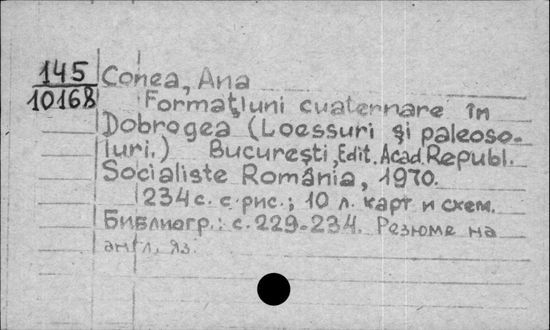 145
10168
Conea, Ana
Formaţiuni cuaternare în
Dobrogea (Loessuri şi paleoso-
luri.) Bucureşti, Edit. Acad. Republ.
Socialiste România, 1970.
234 с. с рис.; 10 л. карт и схем.
Библиогр.: с. 229-234. Резюме на
англ. яз.